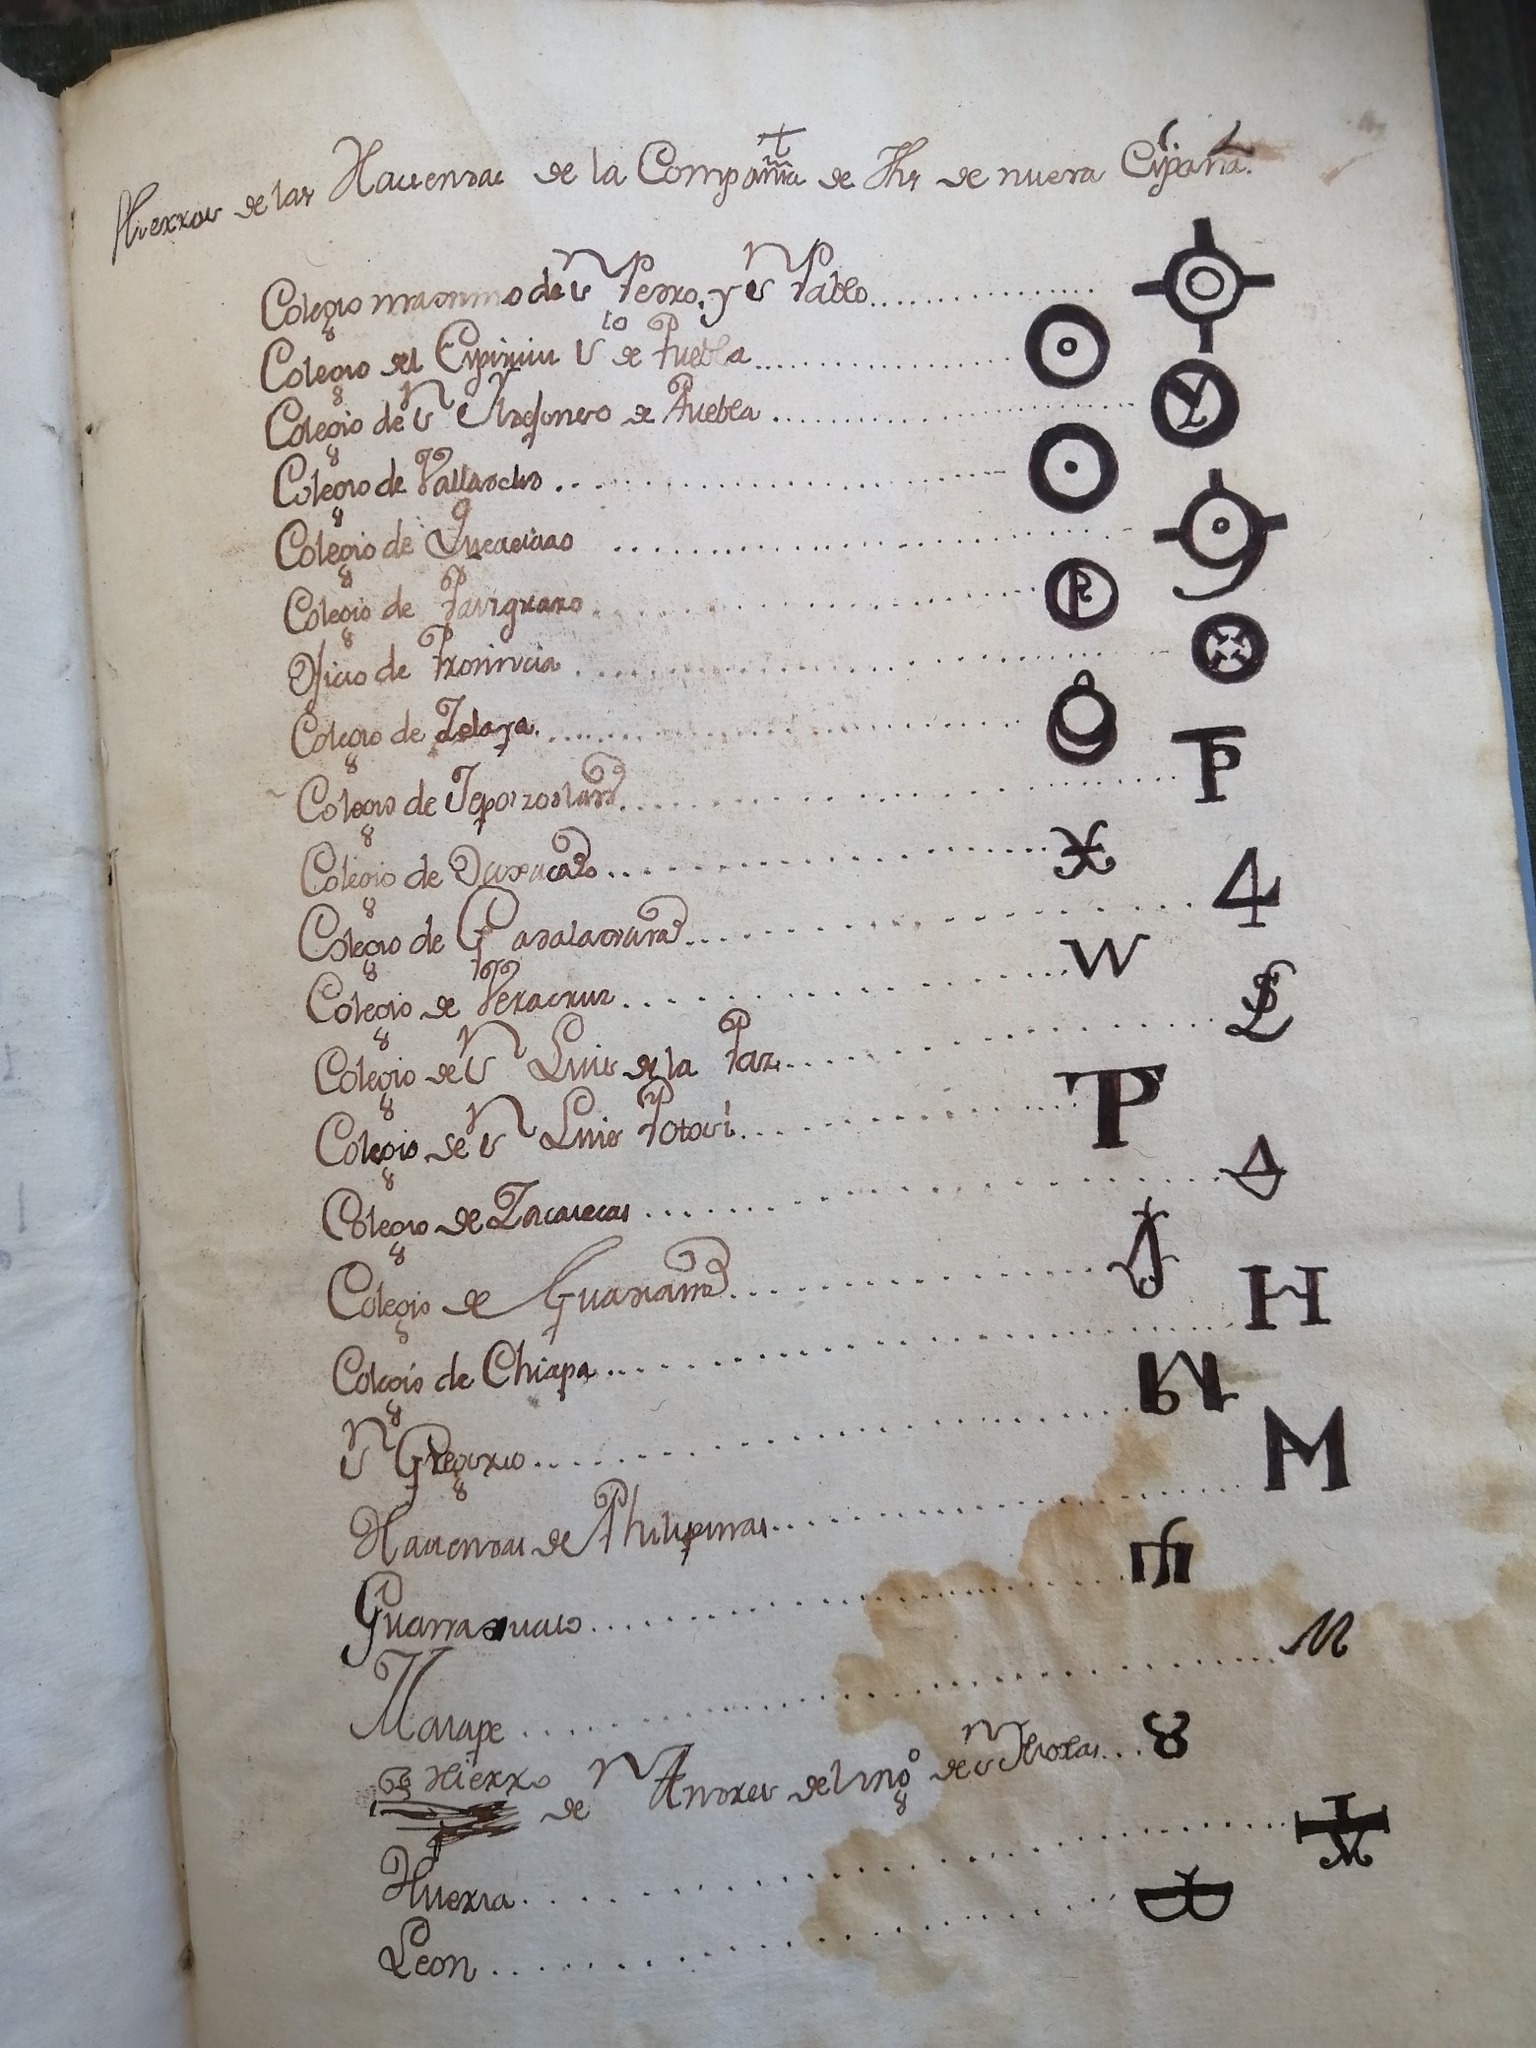 Hierros de las Haciendas de la Compañia de Jhs de nueva España.
Colegio maximo de Sn Pedro, y Sn Pablo
Colegio del Espiritu Sto de Puebla
Colegio de Sn Yldefonso de Puebla
Colegio de Valladolid
Colegio de Queretaro
Colegio de Patzquaro
Oficio de Provincia
Colegio de Zelaya.
Colegio de Tepotzotlan
Colegio de Oaxaca
Colegio de Guadalaxara
Colegio de Veracruz
Colegio de Sn Luis de la Paz
Colegio de Sn Luis Potosi
Colegio de Zacatecas
Colegio de Guadiana
Colegio de Chiapa
Sn Gregorio
Haciendas de Philipinas
Guanaxuato
Marape
Hierro de Sn Andres del ingo de Sn Thomas
Hueria
Leon